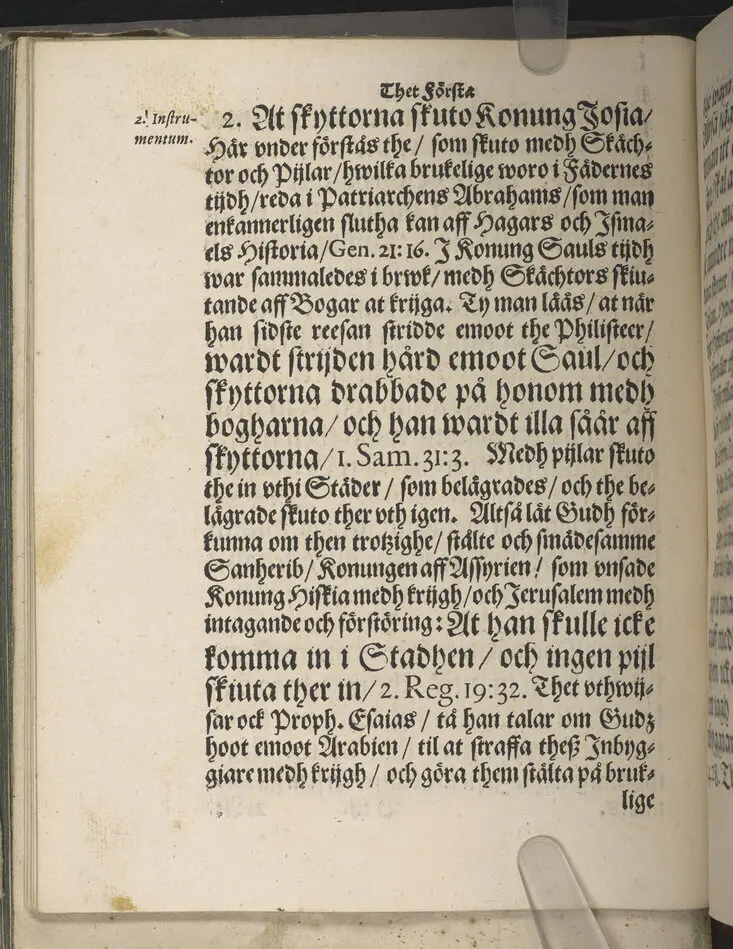 Thet Första
2. Instru-
mentum.
2. At skyttorna skuto Konung Josia/
Här vnder förstås the / som skuto medh Skäch-
tor och Pijlar / hwilka brukelige woro i Fädernes
tijdh / reda i Patriarchens Abrahams / som man
enkannerligen slutha kan aff Hagars och Isma-
els Historia / Gen. 21: 16. I Konung Sauls tijdh
war sammaledes i brwk / medh Skächtors skiu-
tande aff Bogar at krijga. Ty man lääs / at när
han sidste reesan stridde emoot the Philisteer /
wardt strijden hård emoot Saul / och
skyttorna drabbade på honom medh
bogharna / och han wardt illa såår aff
skyttorna / 1. Sam. 31: 3. Medh pijlar skuto
the in vthi Städer / som belägrades / och the be-
lägrade skuto ther vth igen. Altså lät Gudh för-
kunna om then trotzighe / stålte och smädesamme
Sanherib / Konungen aff Assyrien / som vnsade
Konung Hiskia medh krijgh / och Jerusalem medh
intagande och förstöring: At han skulle icke
komma in i Stadhen / och ingen pijl
skiuta ther in / 2. Reg. 19: 32. Thet vthwij-
sar ock Proph. Esaias / tå han talar om Gudz
hoot emoot Arabien / til at straffa theß Inbyg-
giare medh krijgh / och göra them stålta på bruk-
lige